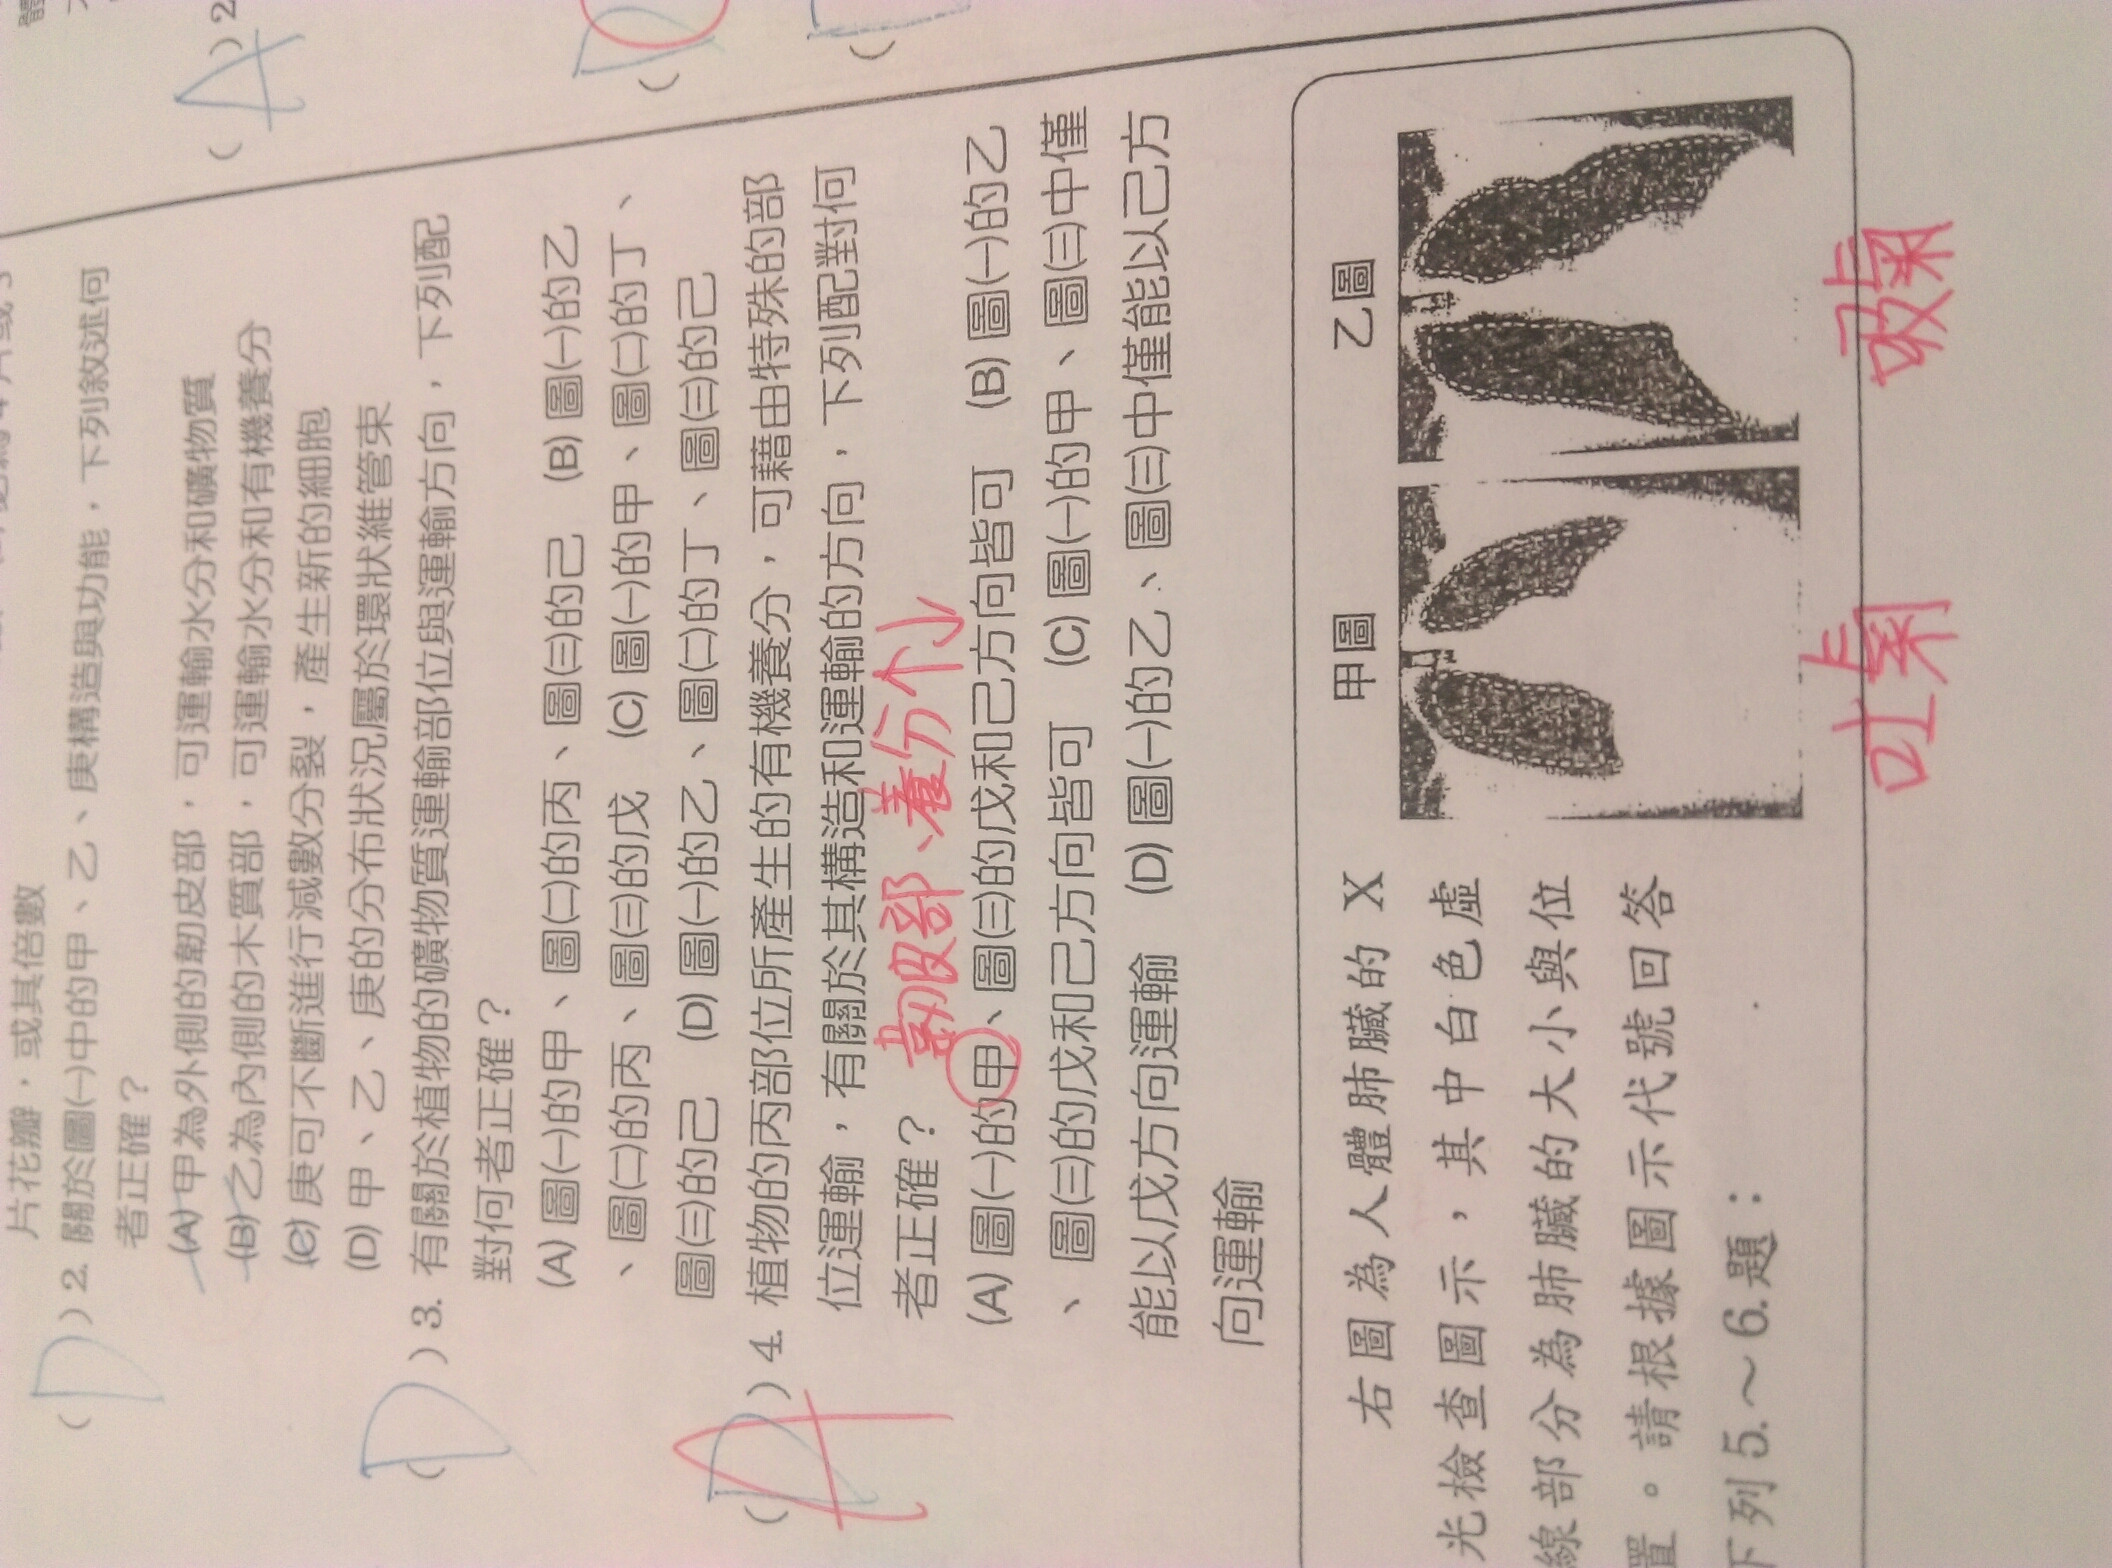 片花瓣，或其倍數
( D )2. 關於圖(一)中的甲、乙、庚構造與功能，下列敘述何
者正確？
(A)甲為外側的韌皮部，可運輸水分和礦物質
(B)乙為內側的木質部，可運輸水分和有機養分
(C)庚可不斷進行減數分裂，產生新的細胞
(D)甲、乙、庚的分布狀況屬於環狀維管束
( D )3. 有關於植物的礦物質運輸部位與運輸方向，下列配
對何者正確？
(A)圖(一)的甲、圖(二)的丙、圖(三)的己 (B)圖(一)的乙
、圖(二)的丙、圖(三)的戊 (C)圖(一)的甲、圖(二)的丁、
圖(三)的己 (D)圖(一)的乙、圖(二)的丁、圖(三)的己
( A )4. 植物的丙部位所產生的有機養分，可藉由特殊的部
位運輸，有關於其構造和運輸的方向，下列配對何
者正確？ 韌皮部、養份↑↓
(A)圖(一)的甲、圖(三)的戊和己方向皆可 (B)圖(一)的乙
、圖(三)的戊和己方向皆可 (C)圖(一)的甲、圖(三)中僅
能以戊方向運輸 (D)圖(一)的乙、圖(三)中僅能以己方
向運輸
右圖為人體肺臟的 X
光檢查圖示，其中白色虛
線部分為肺臟的大小與位
置。請根據圖示代號回答
下列 5.～6.題：
甲圖
乙圖
吐氣
吸氣
( A )2
(
(